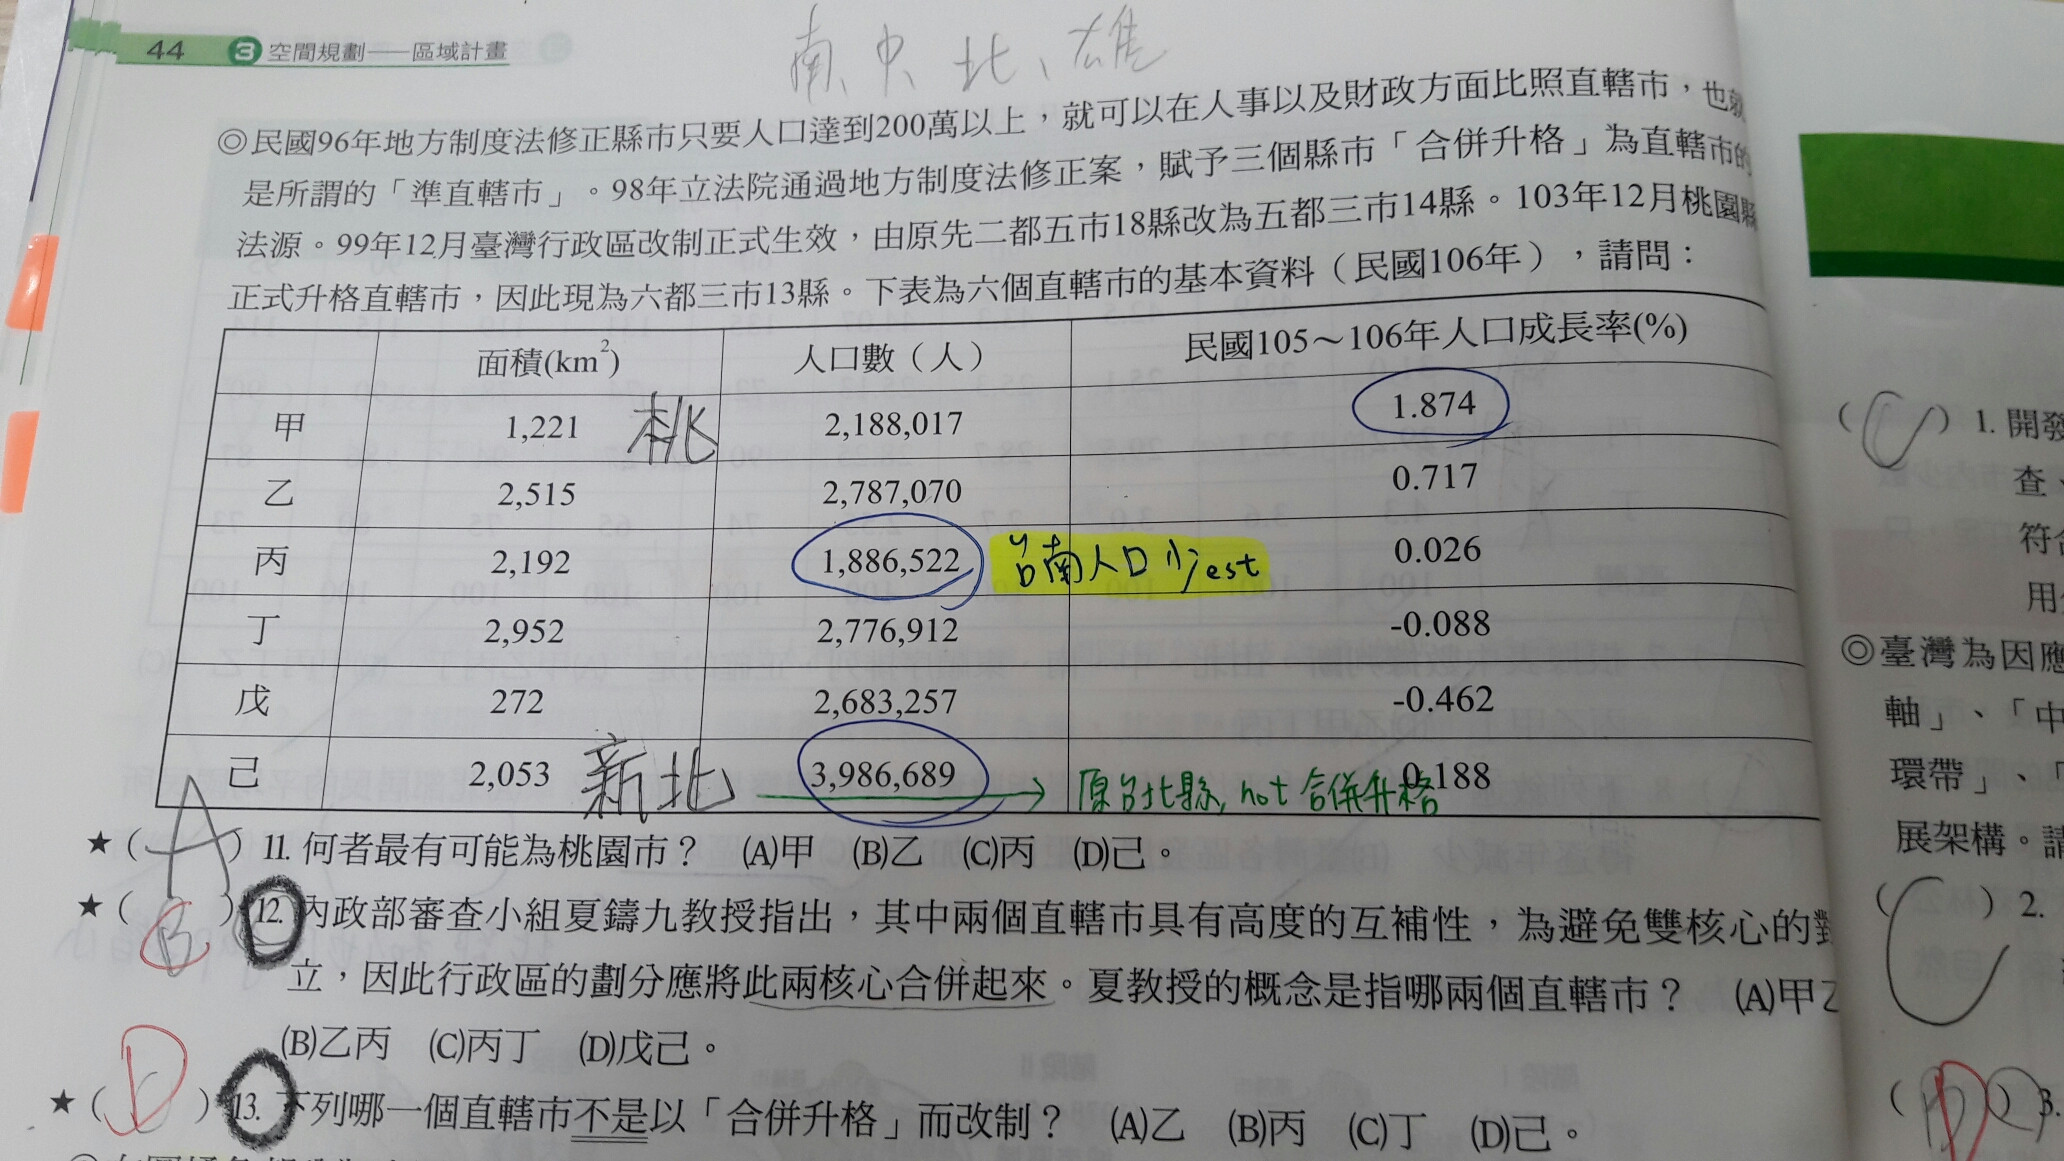 44 3 空間規劃——區域計畫
南、中、北、雄
◎民國96年地方制度法修正縣市只要人口達到200萬以上，就可以在人事以及財政方面比照直轄市，也就
是所謂的「準直轄市」。98年立法院通過地方制度法修正案，賦予三個縣市「合併升格」為直轄市的
法源。99年12月臺灣行政區改制正式生效，由原先二都五市18縣改為五都三市14縣。103年12月桃園縣
正式升格直轄市，因此現為六都三市13縣。下表為六個直轄市的基本資料（民國106年），請問：
面積(km²) 人口數（人） 民國105～106年人口成長率(%)
甲 1,221 桃 2,188,017 1.874
乙 2,515 2,787,070 0.717
丙 2,192 1,886,522 台南人口少est 0.026
丁 2,952 2,776,912 -0.088
戊 272 2,683,257 -0.462
己 2,053 新北 3,986,689 → 原台北縣, not 合併升格 0.188
★( A ) 11. 何者最有可能為桃園市？ (A)甲 (B)乙 (C)丙 (D)己。
★( B ) 12. 內政部審查小組夏鑄九教授指出，其中兩個直轄市具有高度的互補性，為避免雙核心的對
立，因此行政區的劃分應將此兩核心合併起來。夏教授的概念是指哪兩個直轄市？ (A)甲乙
(B)乙丙 (C)丙丁 (D)戊己。
★( D ) 13. 下列哪一個直轄市不是以「合併升格」而改制？ (A)乙 (B)丙 (C)丁 (D)己。
( C ) 1. 開發
查、
符合
用
◎臺灣為因應
軸」、「中
環帶」、「
展架構。請
( C ) 2.
( D ) 3.